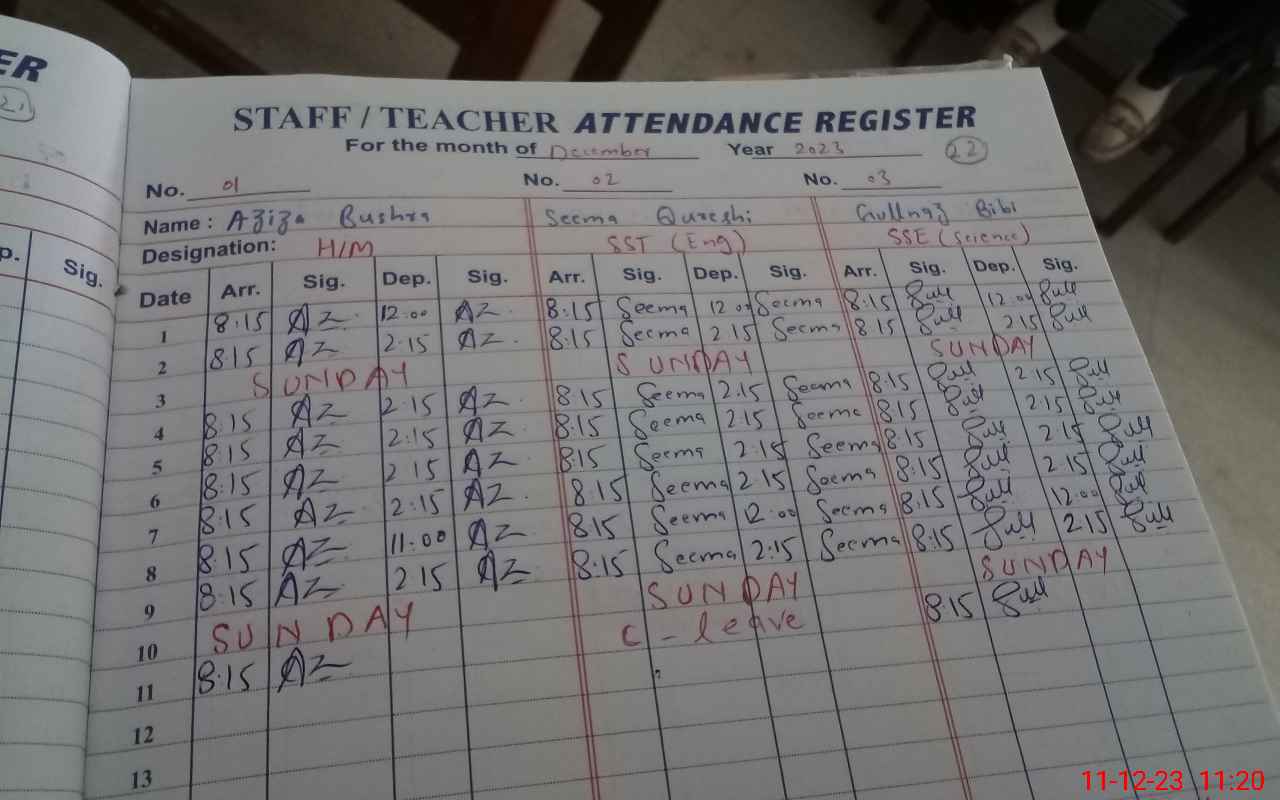 ER
21
STAFF / TEACHER ATTENDANCE REGISTER
For the month of December Year 2023 22
No. 01 No. 02 No. 03
Name : Aziza Bushra Seema Qureshi Gullnaz Bibi
Designation: H/M SST (Eng) SSE (Science)
p. Sig.
Date Arr. Sig. Dep. Sig. Arr. Sig. Dep. Sig. Arr. Sig. Dep. Sig.
1 8:15 AZ 12:00 AZ 8:15 Seema 12:00 Seema 8:15 Gull 12:00 Gull
2 8:15 AZ 2:15 AZ 8:15 Seema 2:15 Seema 8:15 Gull 2:15 Gull
3 SUNDAY SUNDAY SUNDAY
4 8:15 AZ 2:15 AZ 8:15 Seema 2:15 Seema 8:15 Gull 2:15 Gull
5 8:15 AZ 2:15 AZ 8:15 Seema 2:15 Seema 8:15 Gull 2:15 Gull
6 8:15 AZ 2:15 AZ 8:15 Seema 2:15 Seema 8:15 Gull 2:15 Gull
7 8:15 AZ 2:15 AZ 8:15 Seema 2:15 Seema 8:15 Gull 2:15 Gull
8 8:15 AZ 11:00 AZ 8:15 Seema 12:00 Seema 8:15 Gull 12:00 Gull
9 8:15 AZ 2:15 AZ 8:15 Seema 2:15 Seema 8:15 Gull 2:15 Gull
10 SUNDAY SUNDAY SUNDAY
11 8:15 AZ C - leave 8:15 Gull
12
13
11-12-23 11:20